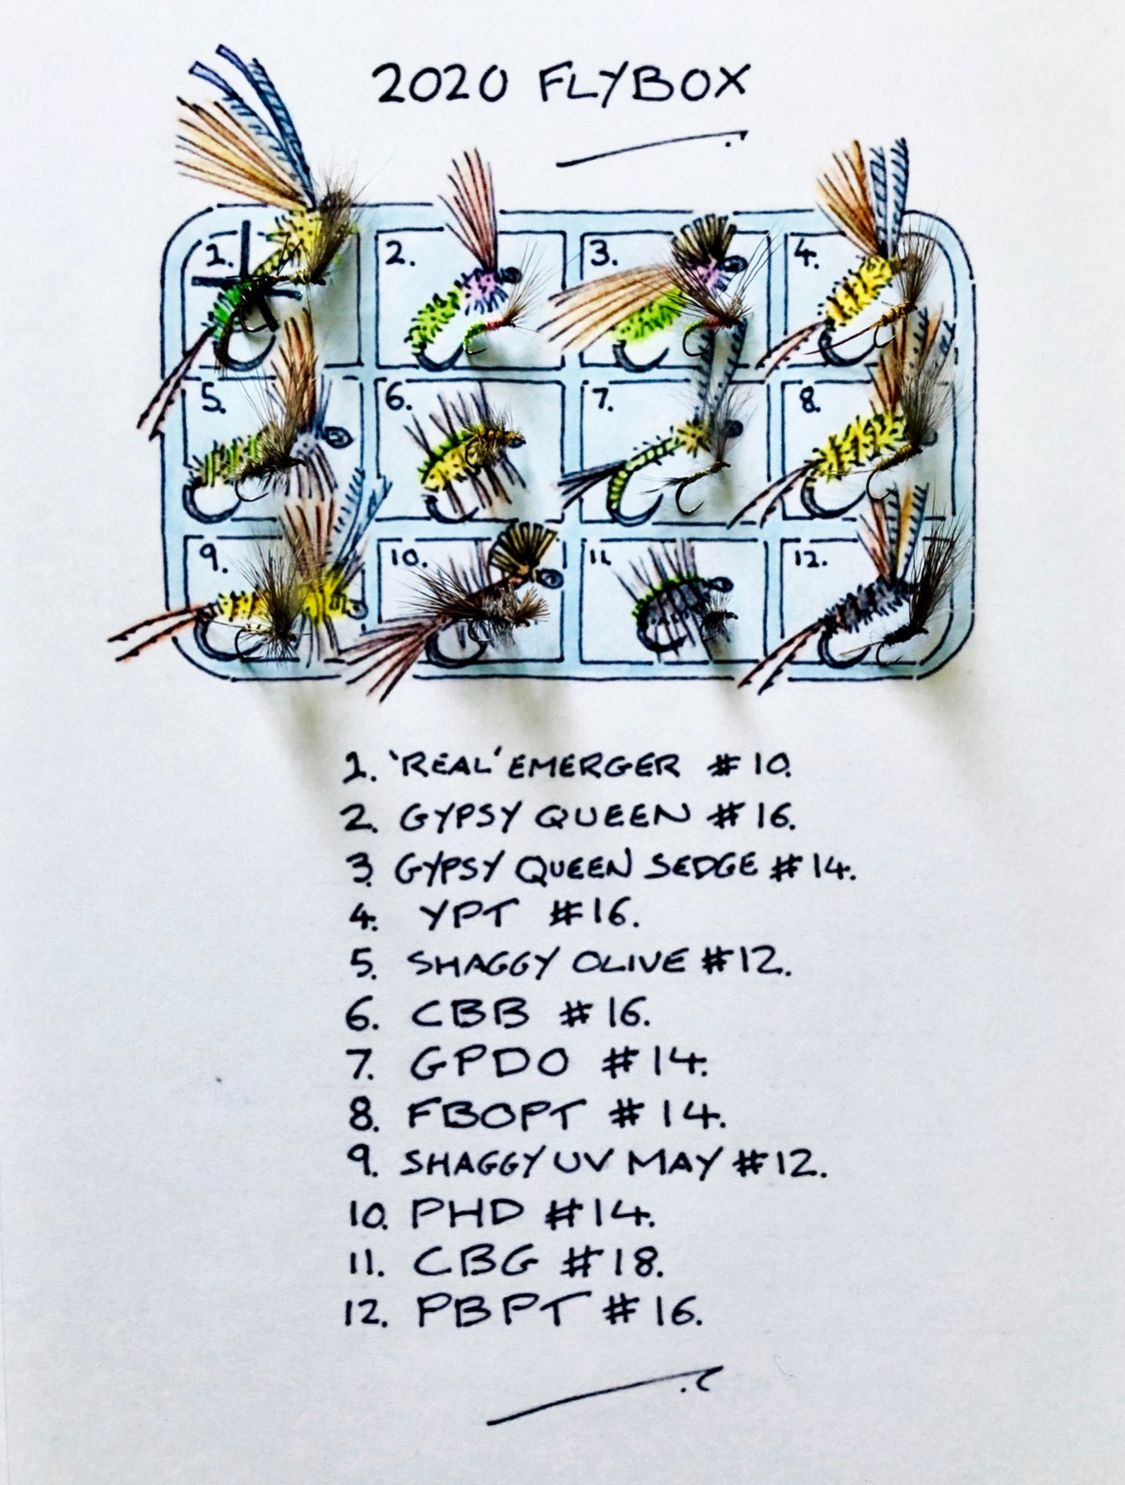 2020 FLYBOX
1. 2. 3. 4.
5. 6. 7. 8.
9. 10. 11. 12.
1. 'REAL' EMERGER #10.
2. GYPSY QUEEN #16.
3. GYPSY QUEEN SEDGE #14.
4. YPT #16.
5. SHAGGY OLIVE #12.
6. CBB #16.
7. GPDO #14.
8. FBOPT #14.
9. SHAGGY UV MAY #12.
10. PHD #14.
11. CBG #18.
12. PBPT #16.